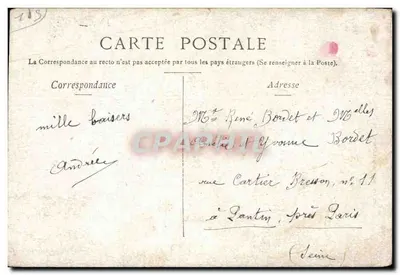 189
CARTE POSTALE
La Correspondance au recto n'est pas acceptée par tous les pays étrangers (Se renseigner à la Poste).
Correspondance
Adresse
mille baisers
Andrée
Mr René Bordet et Melles
et Yvonne Bordet
rue Cartier Bresson, no 11
à Pantin, près Paris
(Seine)